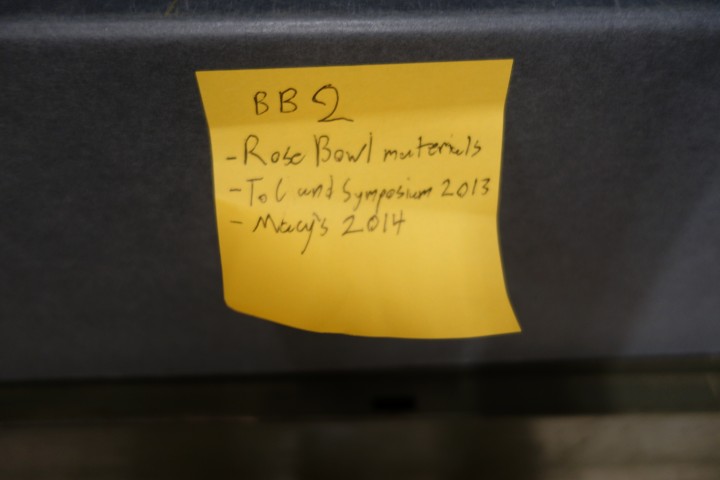 BB 2
- Rose Bowl materials
- ToC and Symposium 2013
- Macy's 2014